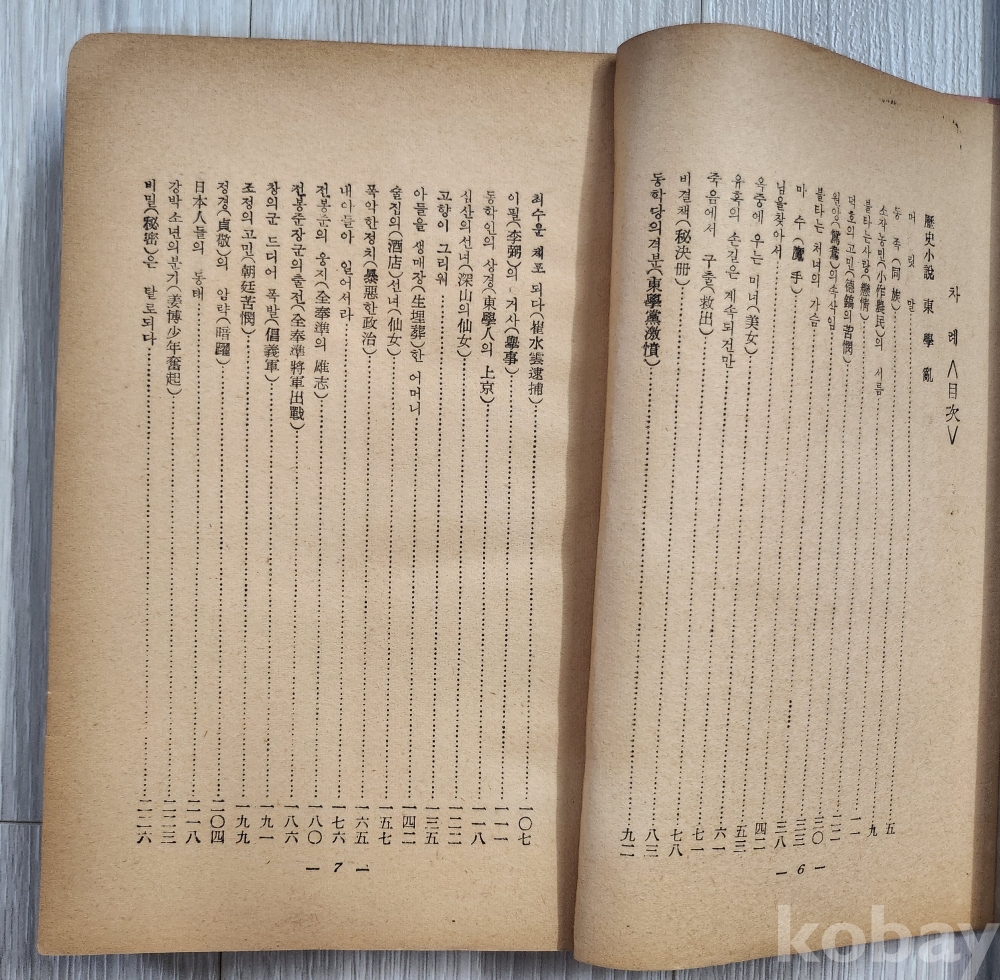 차례 <目次>
歷史小說 東學亂
머릿말……五
동족(同族)……九
소작농민(小作農民)의 서름……一一
불타는사랑(戀情)……二二
덕호의 고민(德鎬의 苦憫)……三〇
원앙(鴛鴦)의 속삭임……三三
불타는 처녀의 가슴……三八
마수(魔手)……四二
님을찾아서……五三
옥중에 우는 미녀(美女)……六一
유혹의 손길은 계속되건만……七一
죽음에서 구출(救出)……七八
비결책(秘決册)……八三
동학당의격분(東學黨激憤)……九二
— 6 —
최수운 체포 되다(崔水雲逮捕)……一〇七
이필(李弼)의 거사(擧事)……一一一
동학인의 상경(東學人의 上京)……一一八
심산의선녀(深山의仙女)……一二二
고향이 그리워……一三五
아들을 생매장(生埋葬)한 어머니……一四二
술집의(酒店)선녀(仙女)……一五七
폭악한정치(暴惡한政治)……一六五
내아들아 일어서라……一七六
전봉준의 웅지(全奉準의 雄志)……一八〇
전봉준장군의출전(全奉準將軍出戰)……一八六
창의군 드디어 폭발(倡義軍)……一九一
조정의고민(朝廷苦憫)……一九九
정경(貞敬)의 암략(暗躍)……二〇四
日本人들의 동태……二一八
강박소년의분기(姜博少年奮起)……二二三
비밀(秘密)은 탈로되다……二二六
— 7 —
kobay